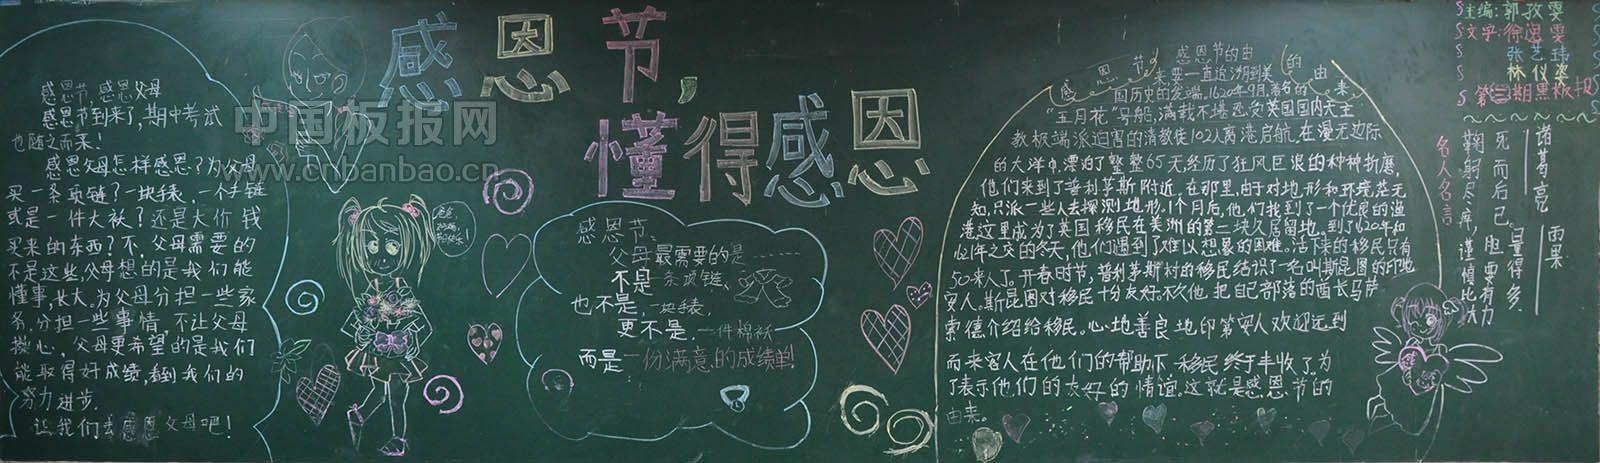 感恩节,
懂得感恩
中国板报网
www.cnbanbao.cn
感恩节 感恩父母
感恩节到来了,期中考试
也随之而来!
感恩父母怎样感恩?为父母
买一条项链?一块手表,一个手链
或是一件大袄?还是大价钱
买来的东西?不,父母需要的
不是这些,父母想的是我们能
懂事,长大。为父母分担一些家
务,分担一些事情,不让父母
操心,父母更希望的是我们
能取得好成绩,看到我们的
努力进步.
让我们去感恩父母吧!
感恩节、
父母最需要的是……
不是 一条项链、
也不是,一块手表,
更不是.一件棉袄
而是一份满意的成绩单!
感恩节的由来
感恩节的由
来要一直追溯到美
国历史的发端,1620年9月,著名的
“五月花”号船,满载不堪忍受英国国内天主
教极端派迫害的清教徒102人离港启航,在漫无边际
的大洋中,漂泊了整整65天,经历了狂风巨浪的种种折磨,
他们来到了普利茅斯附近,在那里,由于对地形和环境茫无
知,只派一些人去探测地形。1个月后,他们找到了一个优良的渔
港,这里成为了英国移民在美洲的第二块久居留地。到了1620年和
1621年之交的冬天,他们遇到了难以想象的困难。活下来的移民只有
50来人了,开春时节,普利茅斯村的移民结识了一名叫斯昆图的印地
安人。斯昆图对移民十分友好。不久他把自己部落的酋长马萨
索德介绍给移民。心地善良地印第安人欢迎远到
而来客人在他们的帮助下移民终于丰收了。为
了表示他们的友好的情谊。这就是感恩节的
由来。
主编:郭孜雯
文字:徐思雯
张艺玮
林仪姿
第三期黑板报
诸葛亮 雨果
死而后已。胆要有力量得多.
鞠躬尽瘁,谨慎比大
名人名言